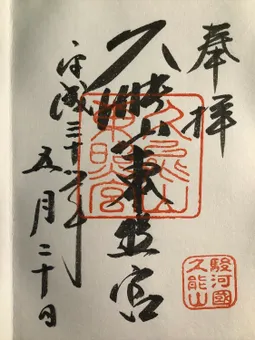 奉拝
久能山東照宮
平成三十年
五月二十日
久能山
東照宮
駿河國
久能山